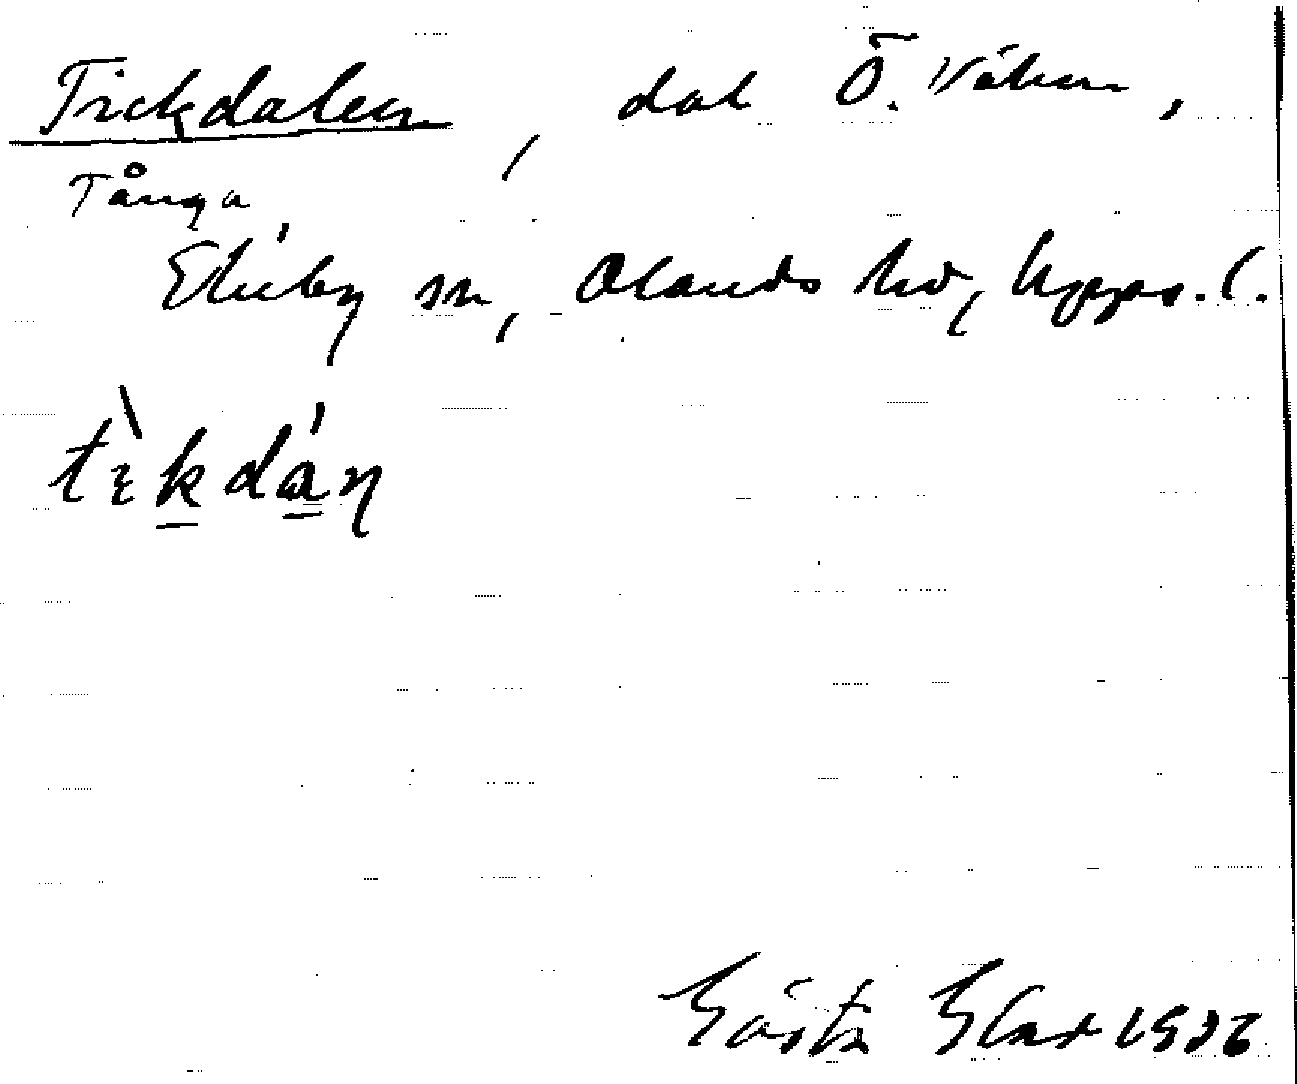 Tickdalen, dal Ö. Våhm,
Tånga
Ekeby sn, Olands hd, Upps. l.
tὶkdáη
Gösta 1936